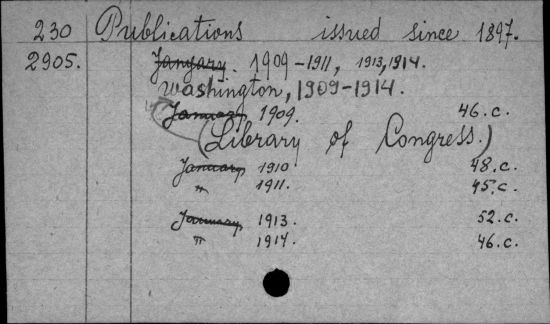 230 Publications issued since 1897.
2905. January. 1909-1911, 1913, 1914.
Washington, 1909-1914.
January 1909. 46.c.
(Library of Congress.)
January 1910. 48.c.
" 1911. 45.c.
January 1913. 52.c.
" 1914. 46.c.